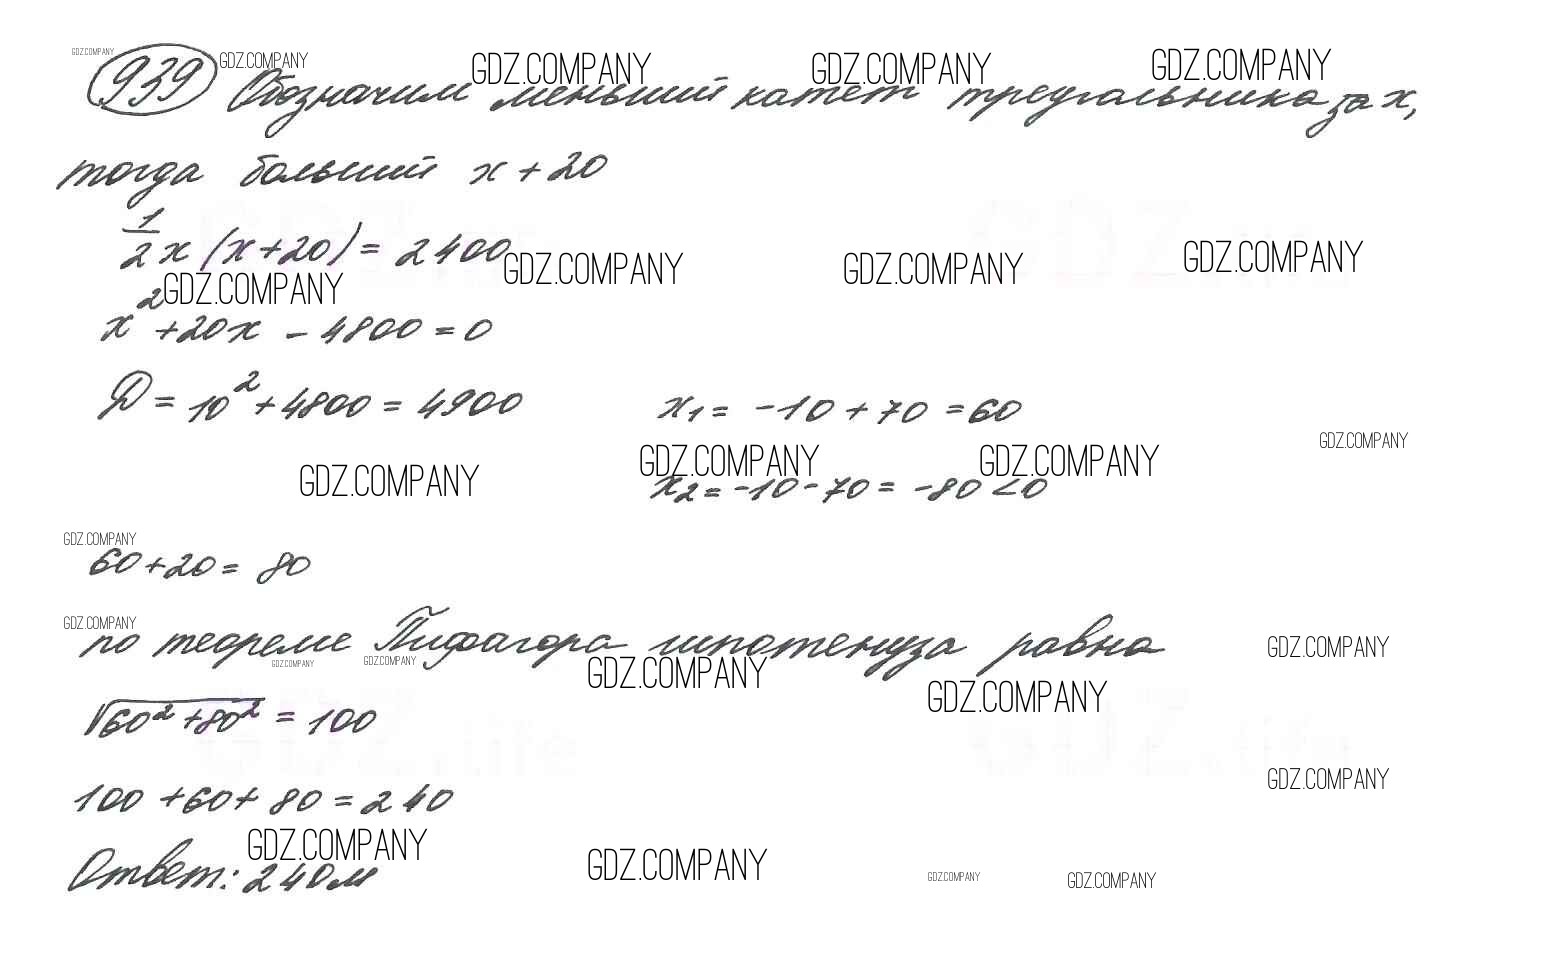 GDZ.COMPANY
939 Обозначим меньший катет треугальника за x,
GDZ.COMPANY GDZ.COMPANY GDZ.COMPANY GDZ.COMPANY
тогда больший x + 20
1/2 x (x + 20) = 2400
GDZ.COMPANY GDZ.COMPANY GDZ.COMPANY GDZ.COMPANY
x² + 20x - 4800 = 0
D = 10² + 4800 = 4900 x₁ = -10 + 70 = 60
GDZ.COMPANY
GDZ.COMPANY GDZ.COMPANY GDZ.COMPANY
x₂ = -10 - 70 = -80 < 0
GDZ.COMPANY
60 + 20 = 80
GDZ.COMPANY
по теореме Пифагора гипотенуза равна
GDZ.COMPANY GDZ.COMPANY GDZ.COMPANY GDZ.COMPANY GDZ.COMPANY
√60² + 80² = 100
GDZ.life GDZ.life
GDZ.COMPANY
100 + 60 + 80 = 240
GDZ.COMPANY GDZ.COMPANY GDZ.COMPANY GDZ.COMPANY
Ответ: 240 м